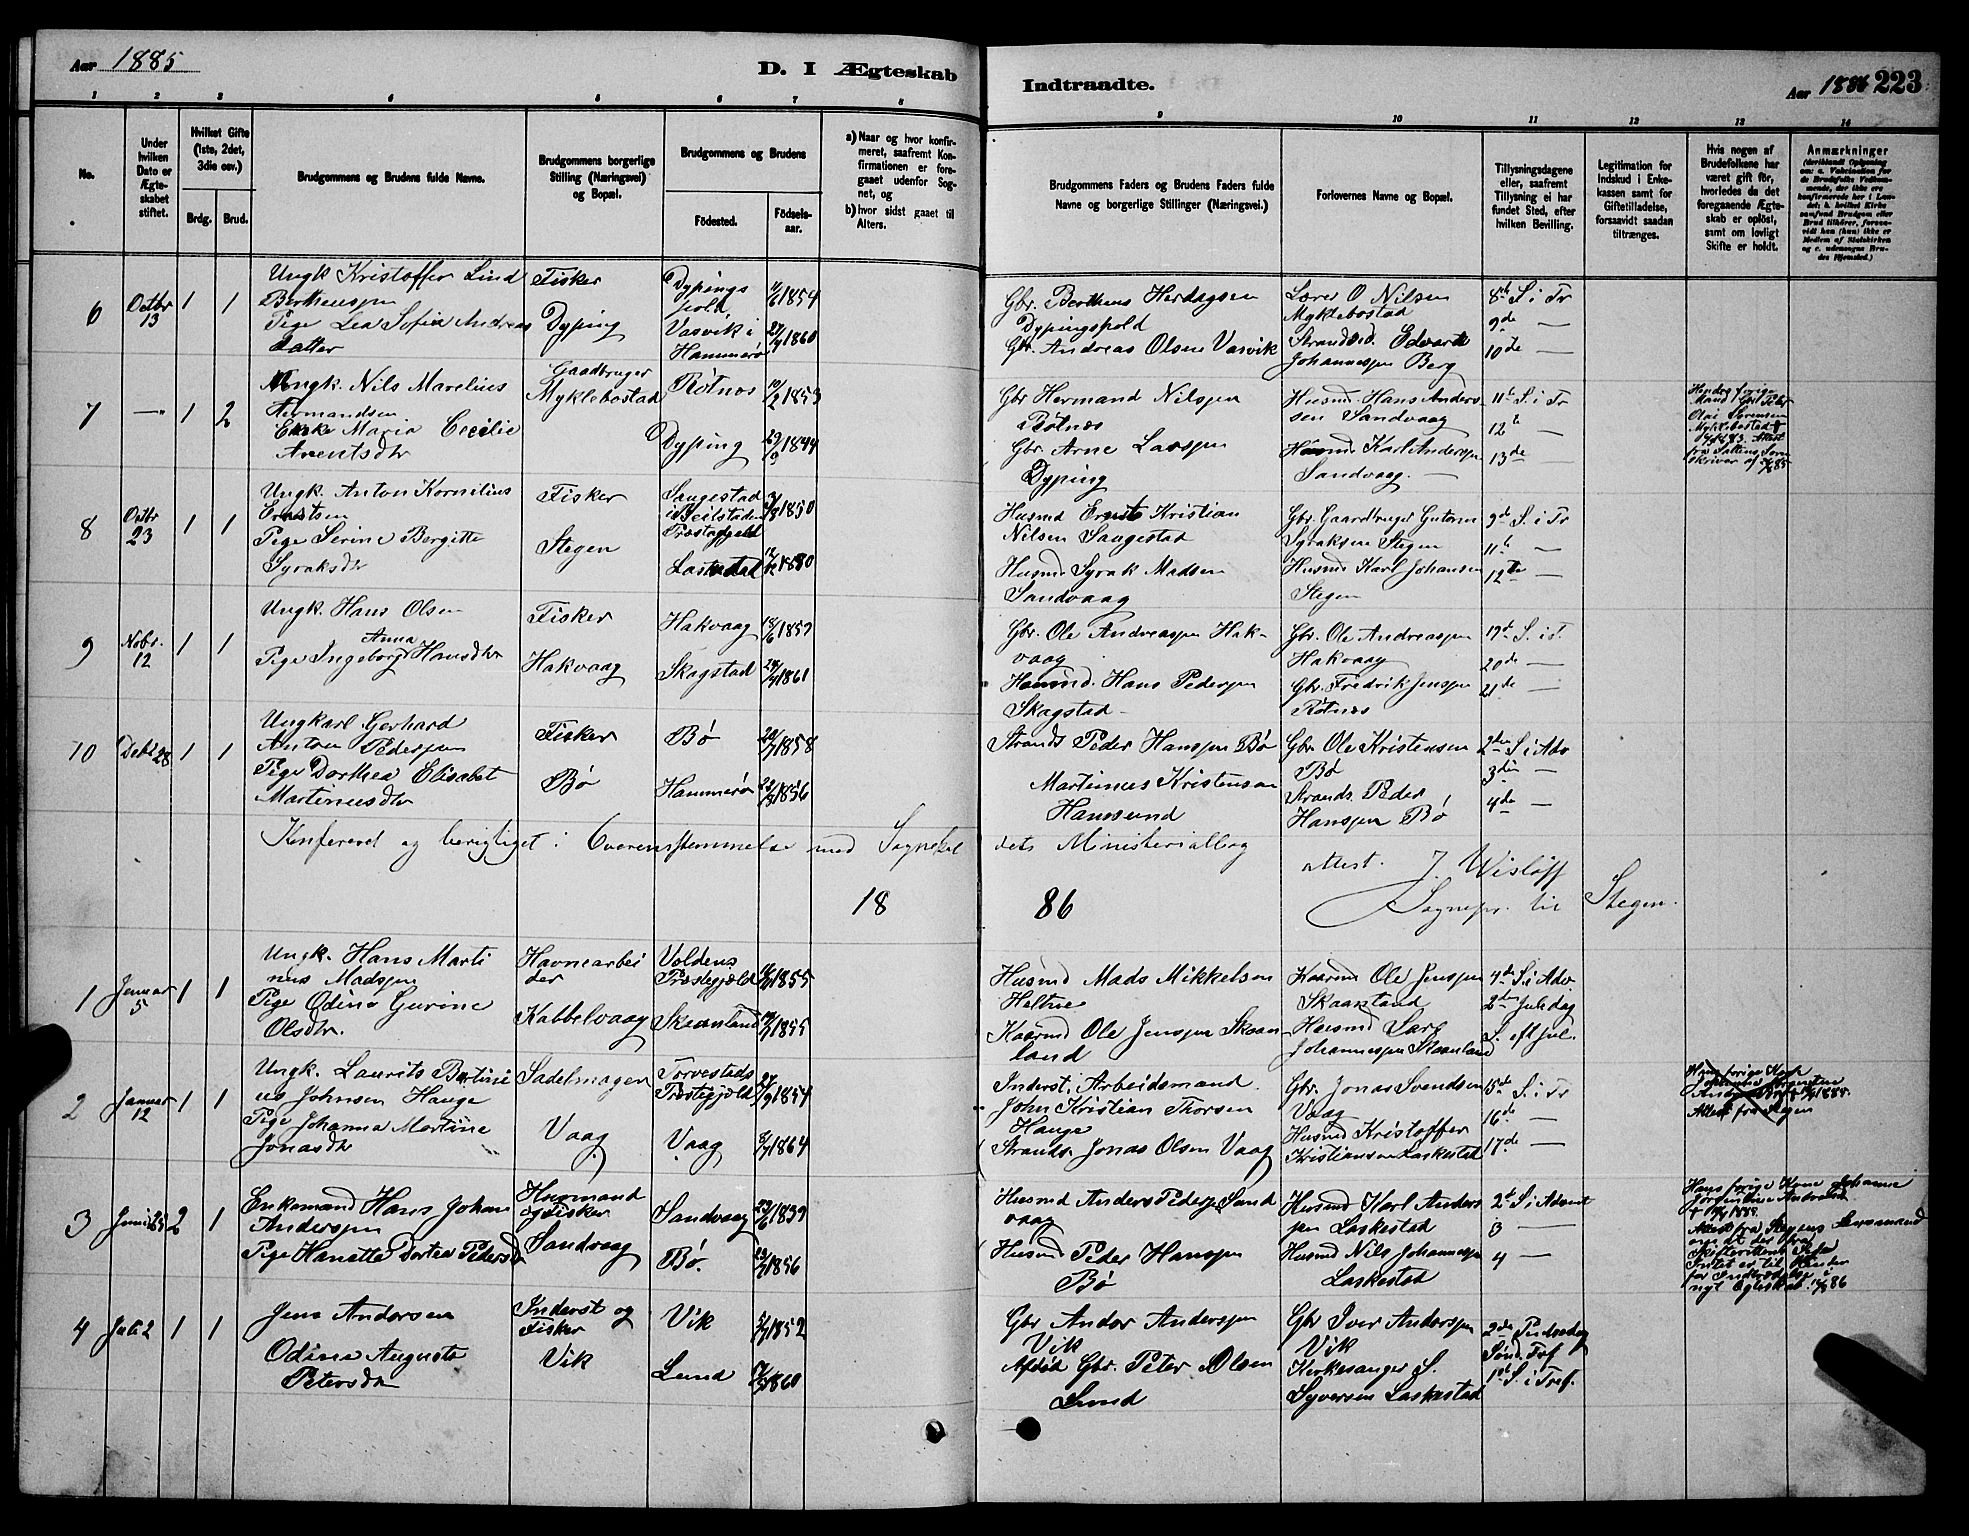 Aar 1885
D. I Ægteskab
Indtraadte.
Aar 1886 223
1 2 3 4 5 6 7 8 9 10 11 12 13 14
No.
Under hvilken Dato er Ægteskabet stiftet.
Hvilket Gifte (1ste, 2det, 3die osv.)
Brdg. Brud.
Brudgommens og Brudens fulde Navne.
Brudgommens borgerlige Stilling (Næringsvei) og Bopæl.
Brudgommens og Brudens
Födested. Födselsaar.
a) Naar og hvor konfirmeret, saafremt Konfirmationen er foregaaet udenfor Sognet, og
b) hvor sidst gaaet til Alters.
Brudgommens Faders og Brudens Faders fulde Navne og borgerlige Stillinger (Næringsvei.)
Forlovernes Navne og Bopæl.
Tillysningsdagene eller, saafremt Tillysning ei har fundet Sted, efter hvilken Bevilling.
Legitimation for Indskud i Enkekassen samt for Giftetilladelse, forsaavidt saadan tiltrænges.
Hvis nogen af Brudefolkene har været gift för, hvorledes da det foregaaende Ægteskab er oplöst, samt om lovligt Skifte er holdt.
Anmærkninger
6 Octbr 13 1 1
Ungk Kristoffer Lind
Bertheussen
Pige Lea Sofia Andreas
datter
Fisker
Dyping
Dypings
pold
Vasvik i
Hammerø
11/6 1854
27/4 1860
Gbr. Bertheus Herdagsen
Dypingspold
Gbr. Andreas Olsen Vasvik
Lærer O Nilsen
Myklebostad
Strandsid. Edvard
Johannessen Berg
8de S. i Tr
9de —
10de —
7 —"— 1 2
Ungk. Nils Marelius
Hermandsen
Enke Maria Cecilie
Arentsdtr
Gaardbruger
Myklebostad
Røtnes
Dyping
10/2 1853
29/9 1844
Gbr Hermand Nilssen
Røtnes
Gbr. Arne Larssen
Dyping
Husmd. Hans Anders-
sen Sandvaag
Husmd Karl Anderssen
Sandvaag.
11te S. i Tr
12te —
13de —
Hendes forige
Mand Gbr Peter
Olai Sørensen
Myklebostad †
8 Octbr 23 1 1
Ungk. Anton Kornilius
Ernstsen
Pige Serine Bergitte
Syraksdtr
Fisker
Stegen
Saugestad
i Beitstadens
Præstegjeld
Laskestad
1850
1860
Husmd Ernst Kristian
Nilsen Saugestad
Husmd Syrak Madsen
Sandvaag
Gbr. Gaardbruger Gutorm
Syraksen Stegen
Husmd Karl Johansen
Stegen
9de S. i Tr
11te —
12te —
9 Nobr. 12 1 1
Ungk. Hans Olsen
Anna
Pige Ingeborg Hansdtr
Fisker
Hakvaag
Hakvaag
Skagstad
18/6 1857
1861
Gbr. Ole Andreassen Hak-
vaag
Husmd. Hans Pederssen
Skagstad
Gbr. Ole Andreassen
Hakvaag
Gbr. Fredrik Jenssen
Røtnes
19de S. i T.
20de —
21de —
10 Debr 28 1 1
Ungkarl Gerhard
Anton Pederssen
Pige Dorthea Elisabet
Martinusdtr
Fisker
Bø
Bø
Hammerø
1858
1856
Strands Peder Hanssen Bø
Martinus Kristensen
Hamsund
Gbr. Ole Kristensen
Bø
Strands. Peder
Hanssen Bø
2den S. i Adv
3die —
4de —
Konfereret og berigtiget i Overensstemmelse med Sognekal
dets Ministerialbog
attest. J. Wisløff
Sognepr. til Stegen.
18 86
1 Januar 5 1 1
Ungk. Hans Marti
nus Madssen
Pige Odine Gurine
Olsdtr.
Havnearbei
der
Kabbelvaag
Voldens
Præstegjeld
Skaanland
1855
1855
Husmd Mads Mikkelsen
Heltne
Kaarmd Ole Jenssen Skaan
land
Kaarmd Ole Jenssen
Skaanland
Husmd Lars
Johannessen Skaanland
4de S. i Adv.
2den Juledag
S. eft Jul.
2 Januar 12 1 1
Ungk. Laurits Bertini
us Johnsen Hauge
Pige Johanna Martine
Jonasdtr
Sadelmager
Vaag
Torvestads
Præstegjeld
Vaag
27/9 1854
1864
Inderst. Arbeidsmand.
John Kristian Thorsen
Hauge
Strands. Jonas Olsen Vaag
Gbr. Jonas Svendsen
Vaag
Husmd Kristoffer
Kristiansen Laskestad
15de S. i Tr
16de —
17de —
3 Juni 25 2 1
Enkemand Hans Johan
Anderssen
Pige Hanatte Dortea Pedersdtr
Husmand
og Fisker
Sandvaag
Sandvaag
Bø.
1839
1856
Husmd Anders Pederssen Sand
vaag
Husmd Peder Hanssen
Bø
Husmd Karl Anders
sen Laskestad
Husmd Nils Johannessen
Laskestad
2d S. i Advent
3 —
4 —
Hans forige Kone Johanna
Jørgentine
Attest fra Stegens Lensmand
4 Juli 2 1 1
Jens Andorsen
Odine Auguste
Petersdtr
Inderst og
Fisker
Vik
Vik
Lund
1852
1860
Gbr Andor Anderssen
Vik
Afdød Gbr. Peter Olsen
Lund
Gbr Iver Anderssen
Vik
Kirkesanger S.
Syversen Laskestad
2den Pintsedag
Sønd. Tref
1ste S. i Tref.